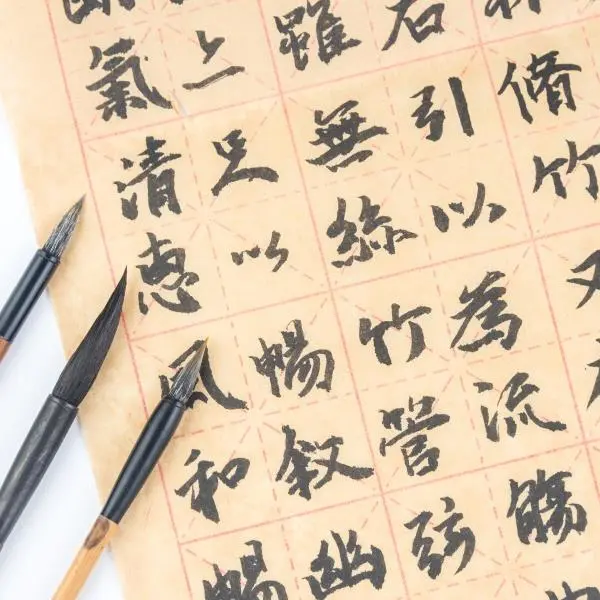 脩竹
右引以為流觴
雖無絲竹管弦
亦足以暢叙幽
氣清惠風和暢